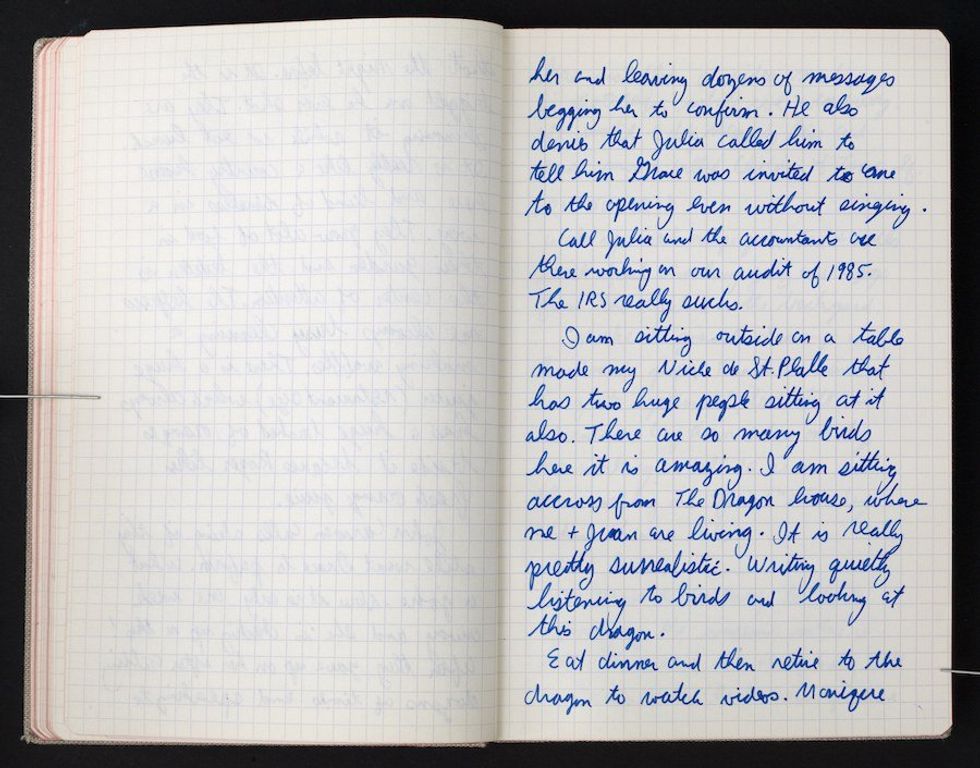 her and leaving dozens of messages
begging her to confirm. He also
denies that Julia called him to
tell him Grace was invited to come
to the opening even without singing.
Call Julia and the accountants are
there working on our audit of 1985.
The IRS really sucks.
I am sitting outside on a table
made my Nicke de St. Phalle that
has two huge people sitting at it
also. There are so many birds
here it is amazing. I am sitting
accross from The Dragon house, where
me + Juan are living. It is really
pretty surrealistic. Writing quietly
listening to birds and looking at
this dragon.
Eat dinner and then retire to the
dragon to watch videos.